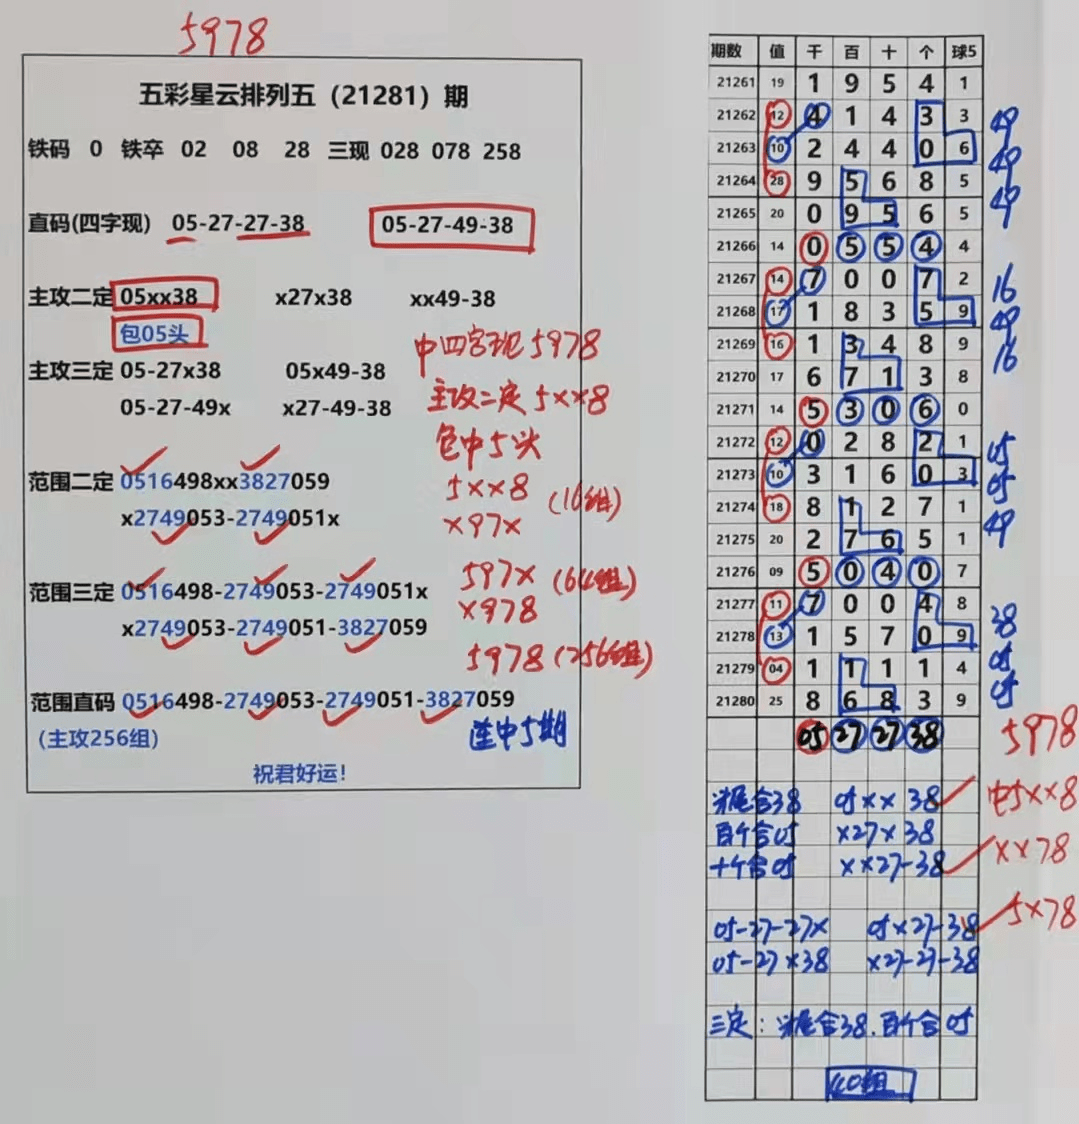 5978
五彩星云排列五（21281）期
铁码 0 铁卒 02 08 28 三现 028 078 258
直码(四字现) 05-27-27-38 05-27-49-38
主攻二定 05xx38 x27x38 xx49-38
包05头
主攻三定 05-27x38 05x49-38
05-27-49x x27-49-38
中四字现5978
主攻二定5xx8
包中5头
范围二定 0516498xx3827059
x2749053-2749051x
5xx8 (16组)
x97x
范围三定 0516498-2749053-2749051x
x2749053-2749051-3827059
597x (64组)
x978
5978 (256组)
范围直码 0516498-2749053-2749051-3827059
(主攻256组)
连中5期
祝君好运!
期数 值 千 百 十 个 球5
21261 19 1 9 5 4 1
21262 12 4 1 4 3 3 49
21263 10 2 4 4 0 6 49
21264 28 9 5 6 8 5 49
21265 20 0 9 5 6 5
21266 14 0 5 5 4 4
21267 14 7 0 0 7 2 16
21268 17 1 8 3 5 9 49
21269 16 1 3 4 8 9 16
21270 17 6 7 1 3 8
21271 14 5 3 0 6 0
21272 12 0 2 8 2 1 05
21273 10 3 1 6 0 3 05
21274 18 8 1 2 7 1 49
21275 20 2 7 6 5 1
21276 09 5 0 4 0 7
21277 11 7 0 0 4 8 38
21278 13 1 5 7 0 9 05
21279 04 1 1 1 1 4 05
21280 25 8 6 8 3 9
05 27 27 38 5978
头尾合38 05xx38 中5xx8
百个合05 x27x38
十个合05 xx27-38 xx78
05-27-27x 05x27-38 5x78
05-27x38 x27-27-38
三定:头尾合38.百个合05
40组